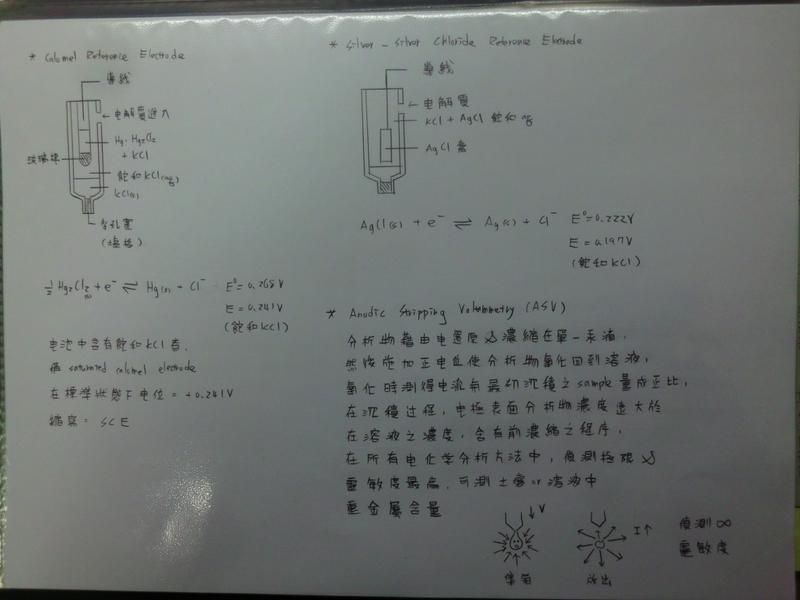 * Calomel Reference Electrode
導線
← 电解質進入
Hg. Hg2Cl2
+ KCl
玻璃綿
飽和KCl(aq)
KCl(s)
多孔塞
½ Hg2Cl2(s) + e⁻ ⇌ Hg(l) + Cl⁻ E°= 0.268V
E = 0.241V
(飽和KCl)
电池中含有飽和KCl者,
saturated calomel electrode
在標準狀態下电位 = +0.241V
縮寫= SCE
* Silver - Silver Chloride Reference Electrode
導線
← 电解質
KCl + AgCl 飽和
AgCl
AgCl(s) + e⁻ ⇌ Ag(s) + Cl⁻ E°=0.222V
E = 0.197V
(飽和KCl)
* Anodic Stripping Voltammetry (ASV)
分析物藉由电還原 濃縮在單一汞滴,
然後施加正电 使分析物氧化回到溶液,
氧化時測得电流與最初沉積之sample量成正比,
在沉積过程, 电極表面分析物濃度遠大於
在溶液之濃度, 含有前濃縮之程序,
在所有电化学分析方法中, 偵測極限
靈敏度最高, 可測土壤or溶液中
重金屬含量
↓V
I↑
放出
偵測∞
靈敏度